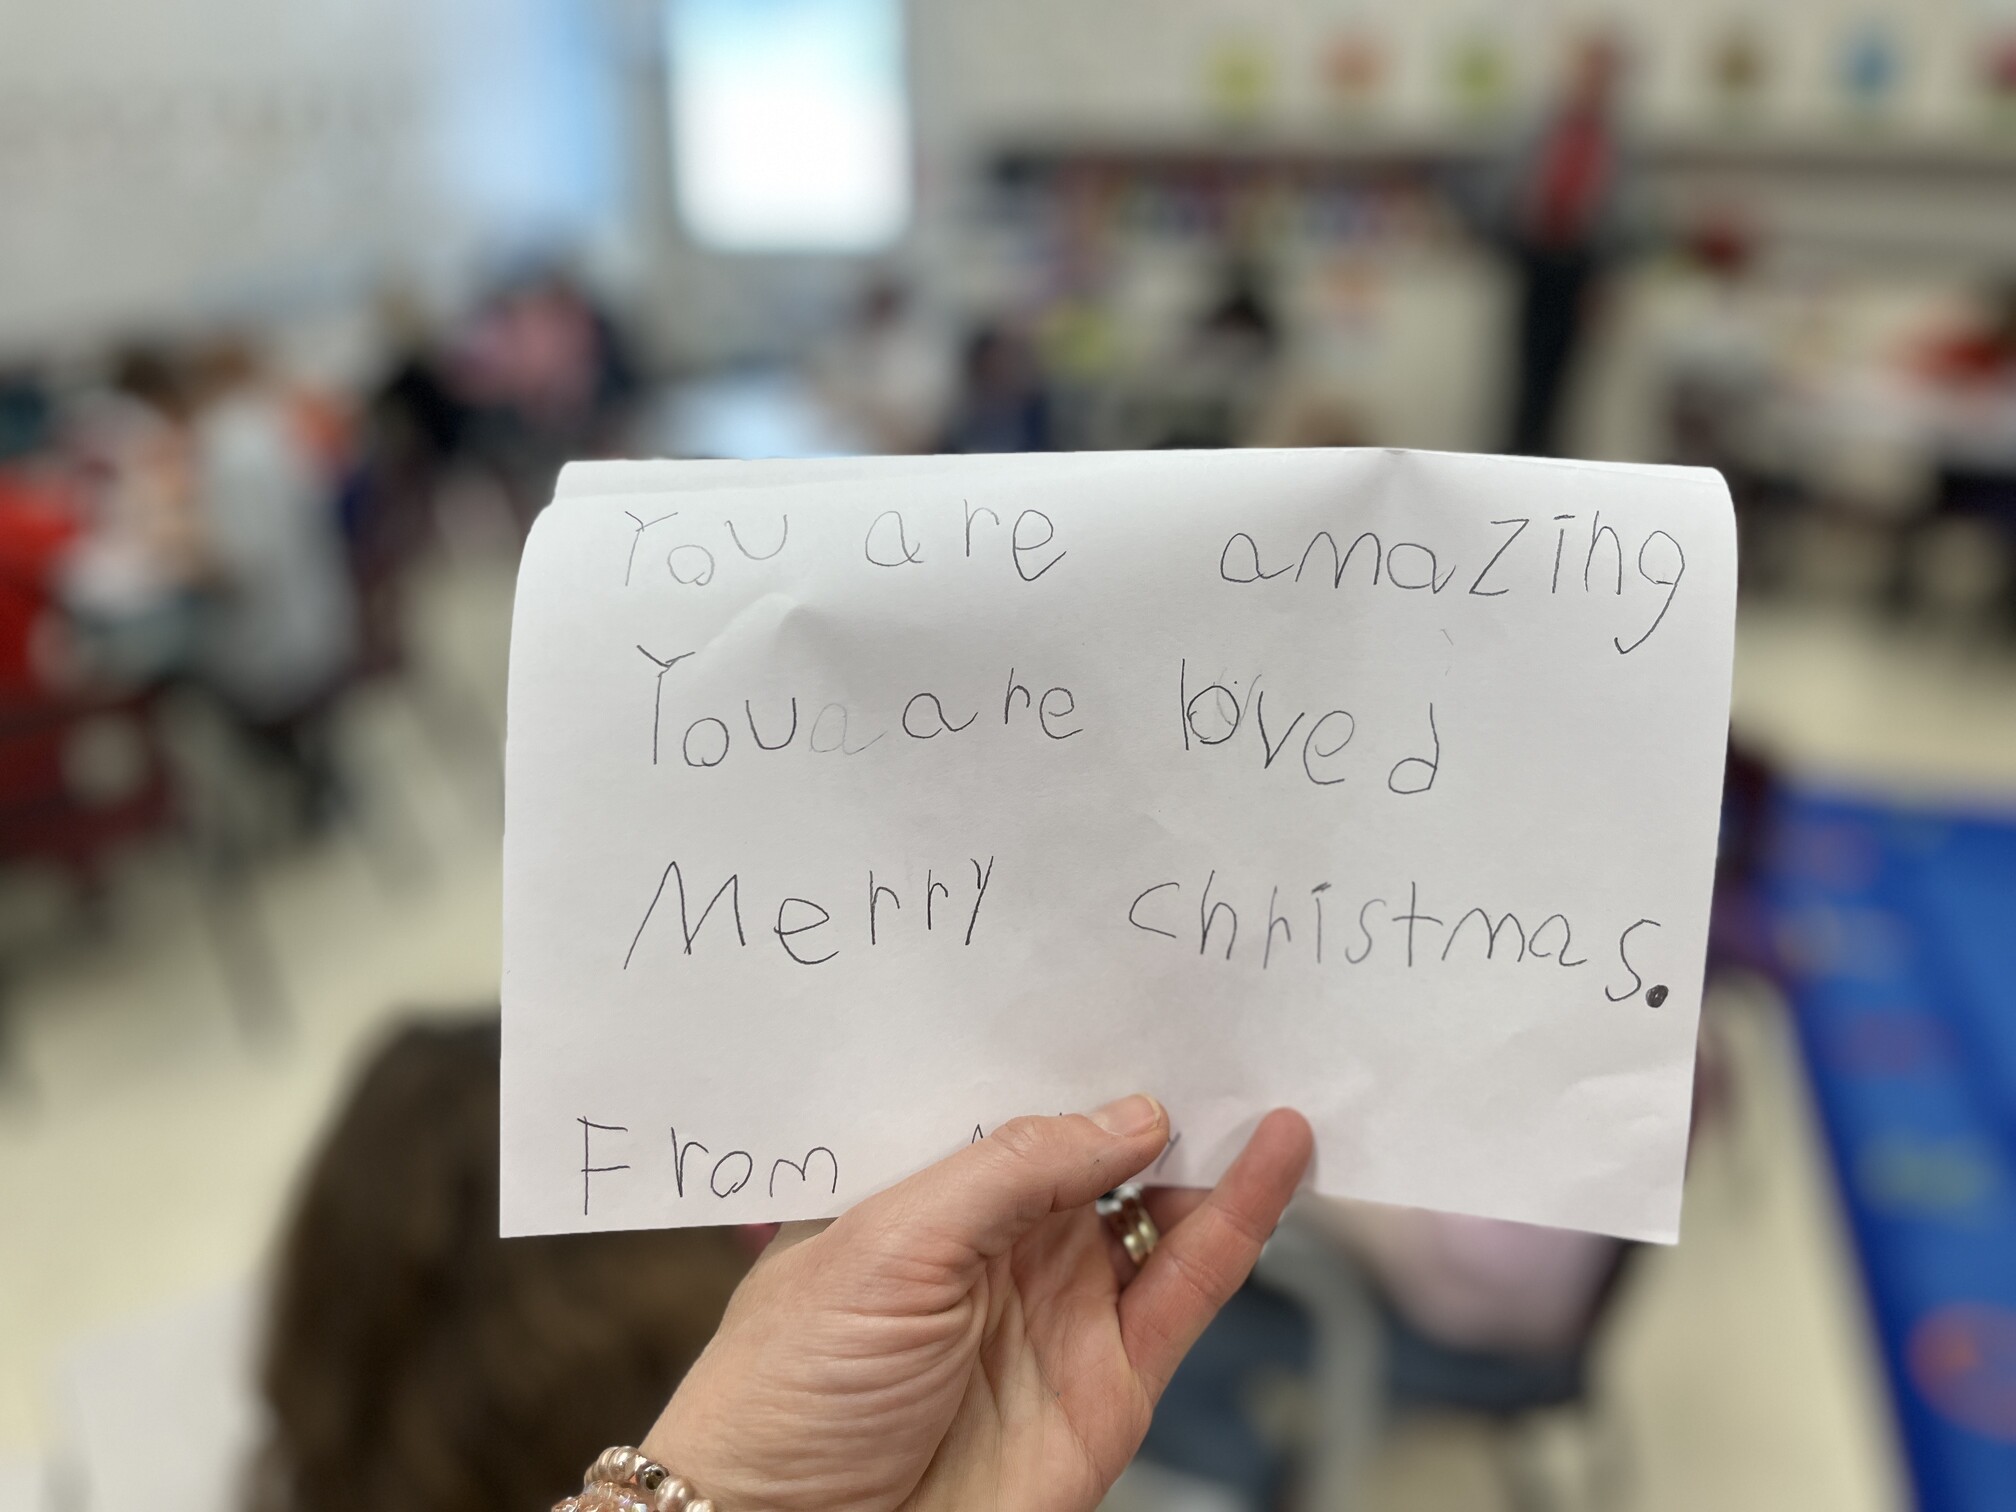 You are amazing
You are loved
Merry christmas.
From